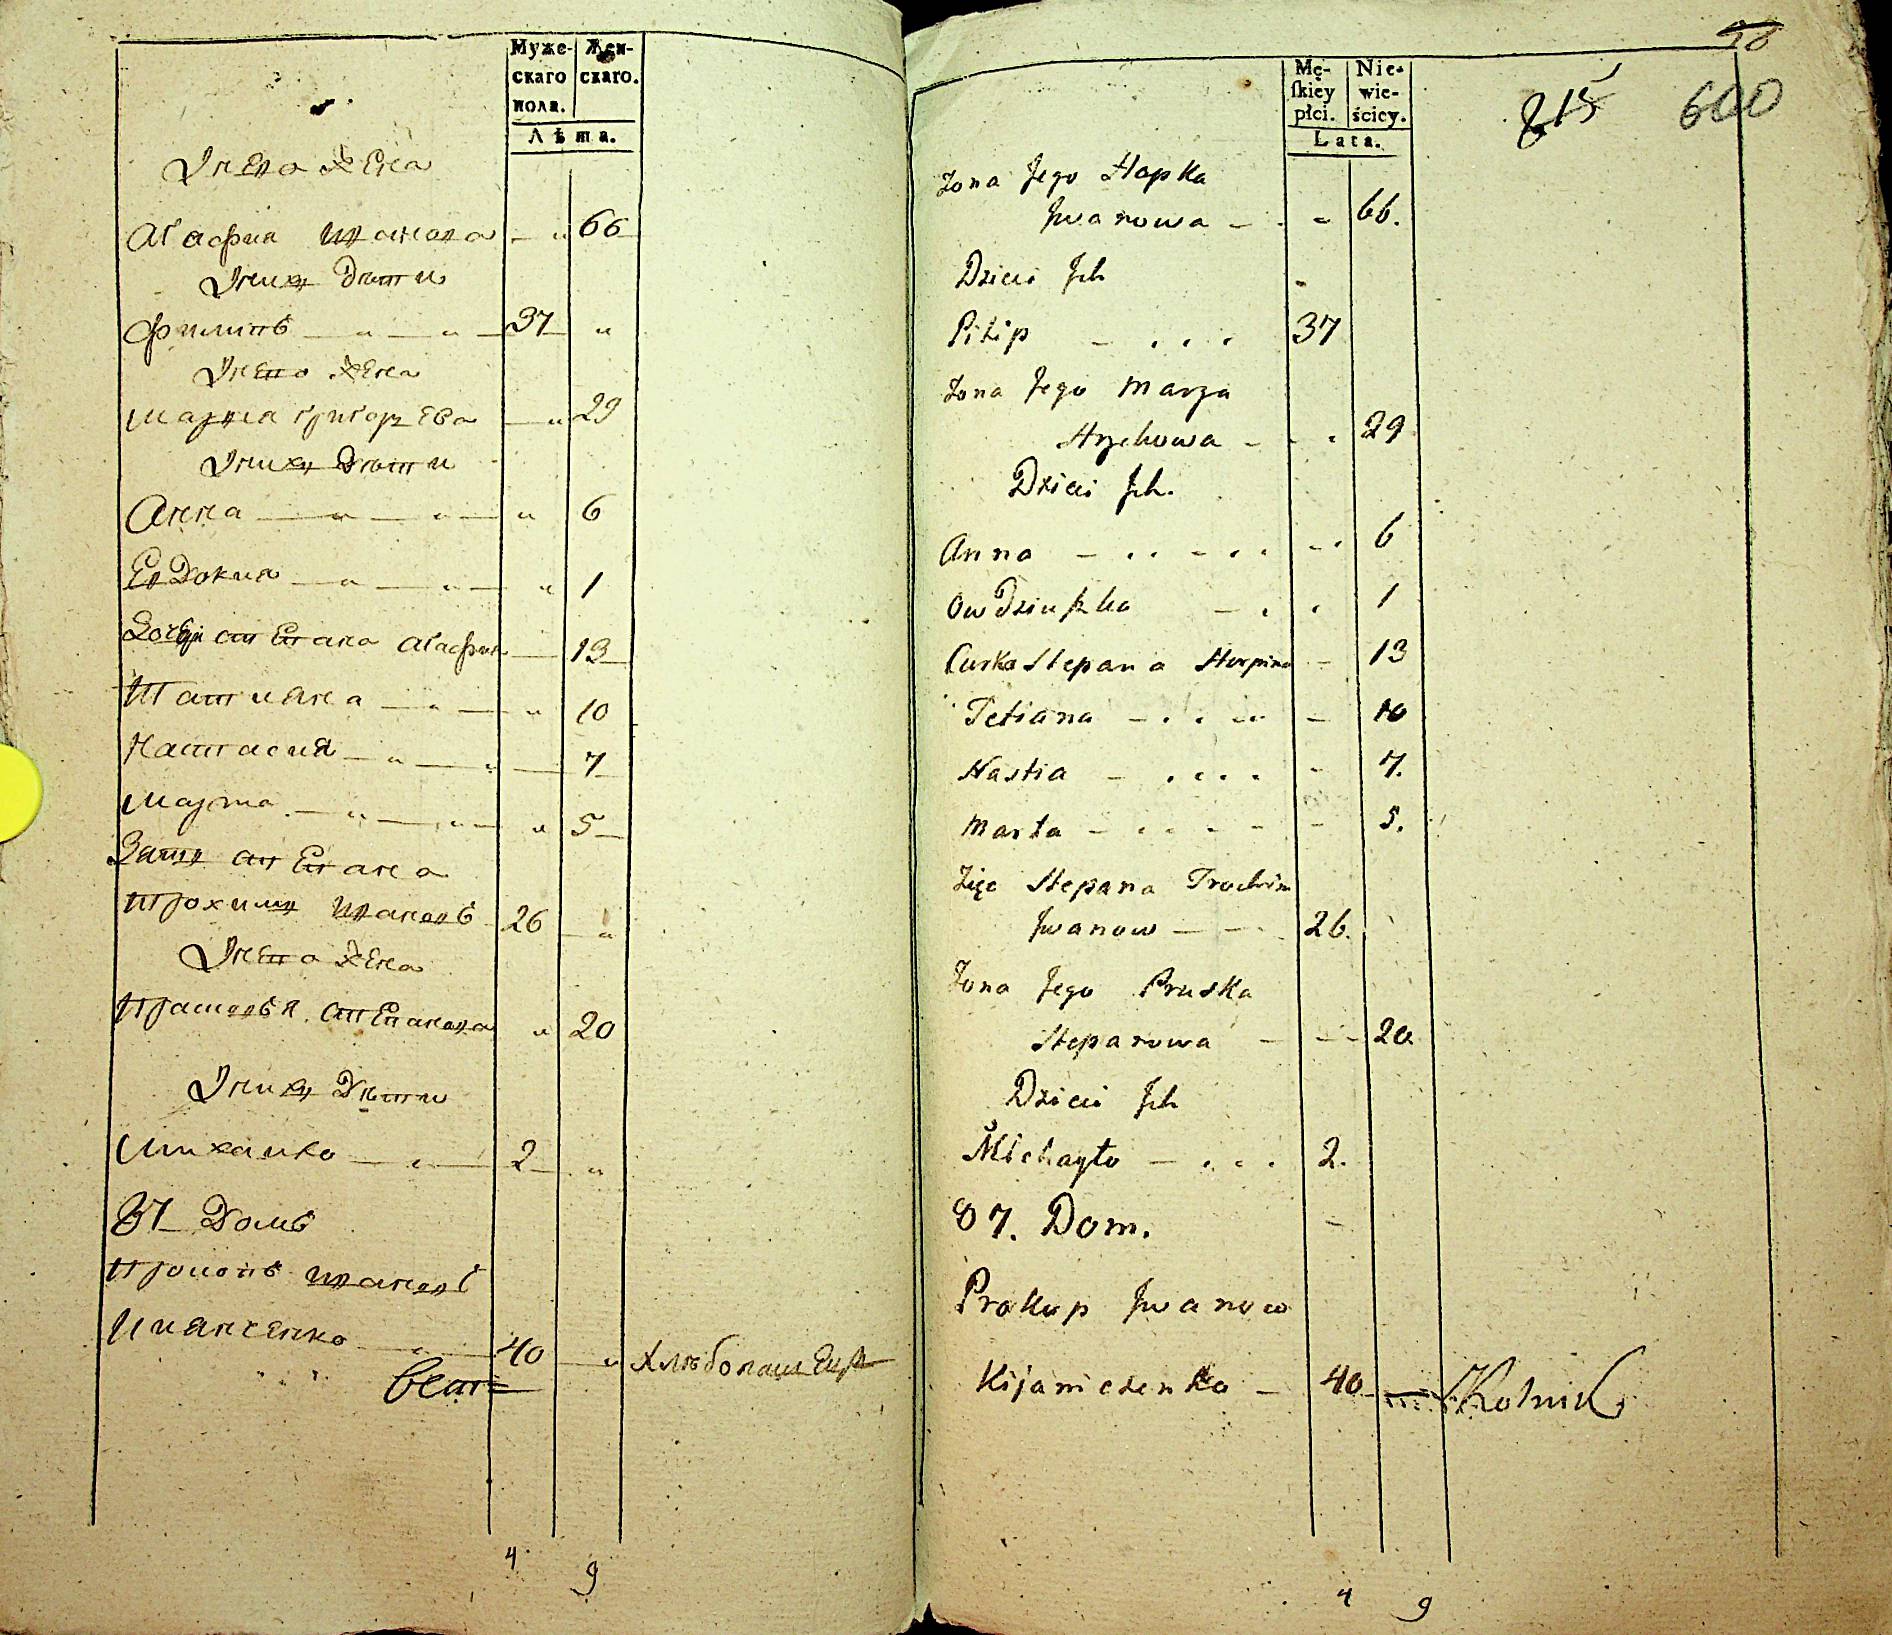 Муже-
скаго
пола.
Жен-
скаго.
Лѣта.
Онаго Жена
Агафия Иванова — „ 66
Оних Дѣти
Филипъ — „ — „ — 37 „
Онаго Жена
Мария Григорьева — „ 29
Оних Дѣти
Анна — „ — „ — „ 6
Евдокия — „ — „ — „ 1
Дочери Степана Агафия — 13
Татиана — „ — „ 10
Настасия — „ — „ — 7
Марта — „ — „ — „ 5
Зять Степана
Трохимъ Ивановъ 26 „
Онаго Жена
Прасковья Степанова „ 20
Оних Дѣти
Михайло — „ — 2 „
87 Домъ
Прокопъ Ивановъ
Киянченко — „ — 40 „ Хлѣбопашецъ
4 9
Mę-
skiey
płci.
Nie-
wie-
ściey.
Lata.
56
815 600
Zona Jego Hapka
Jwanowa — 66.
Dzieci Jch
Pilip — . . . 37
Zona Jego Marya
Hrychowa — 29
Dzieci Jch.
Anna — . . — . . 6
Owdziuszka — . . 1
Curka Stepana Horpina — 13
Tetiana — . . 10
Nastia — . . . . 7.
Marta — . . 5.
Zięć Stepana Trochim
Jwanow — 26.
Zona Jego Pruska
Stepanowa — 20.
Dzieci Jch
Michayło — . . . 2.
87. Dom.
Prokop Jwanow
Kijaniczenko — 40 — Rolnik
4 9